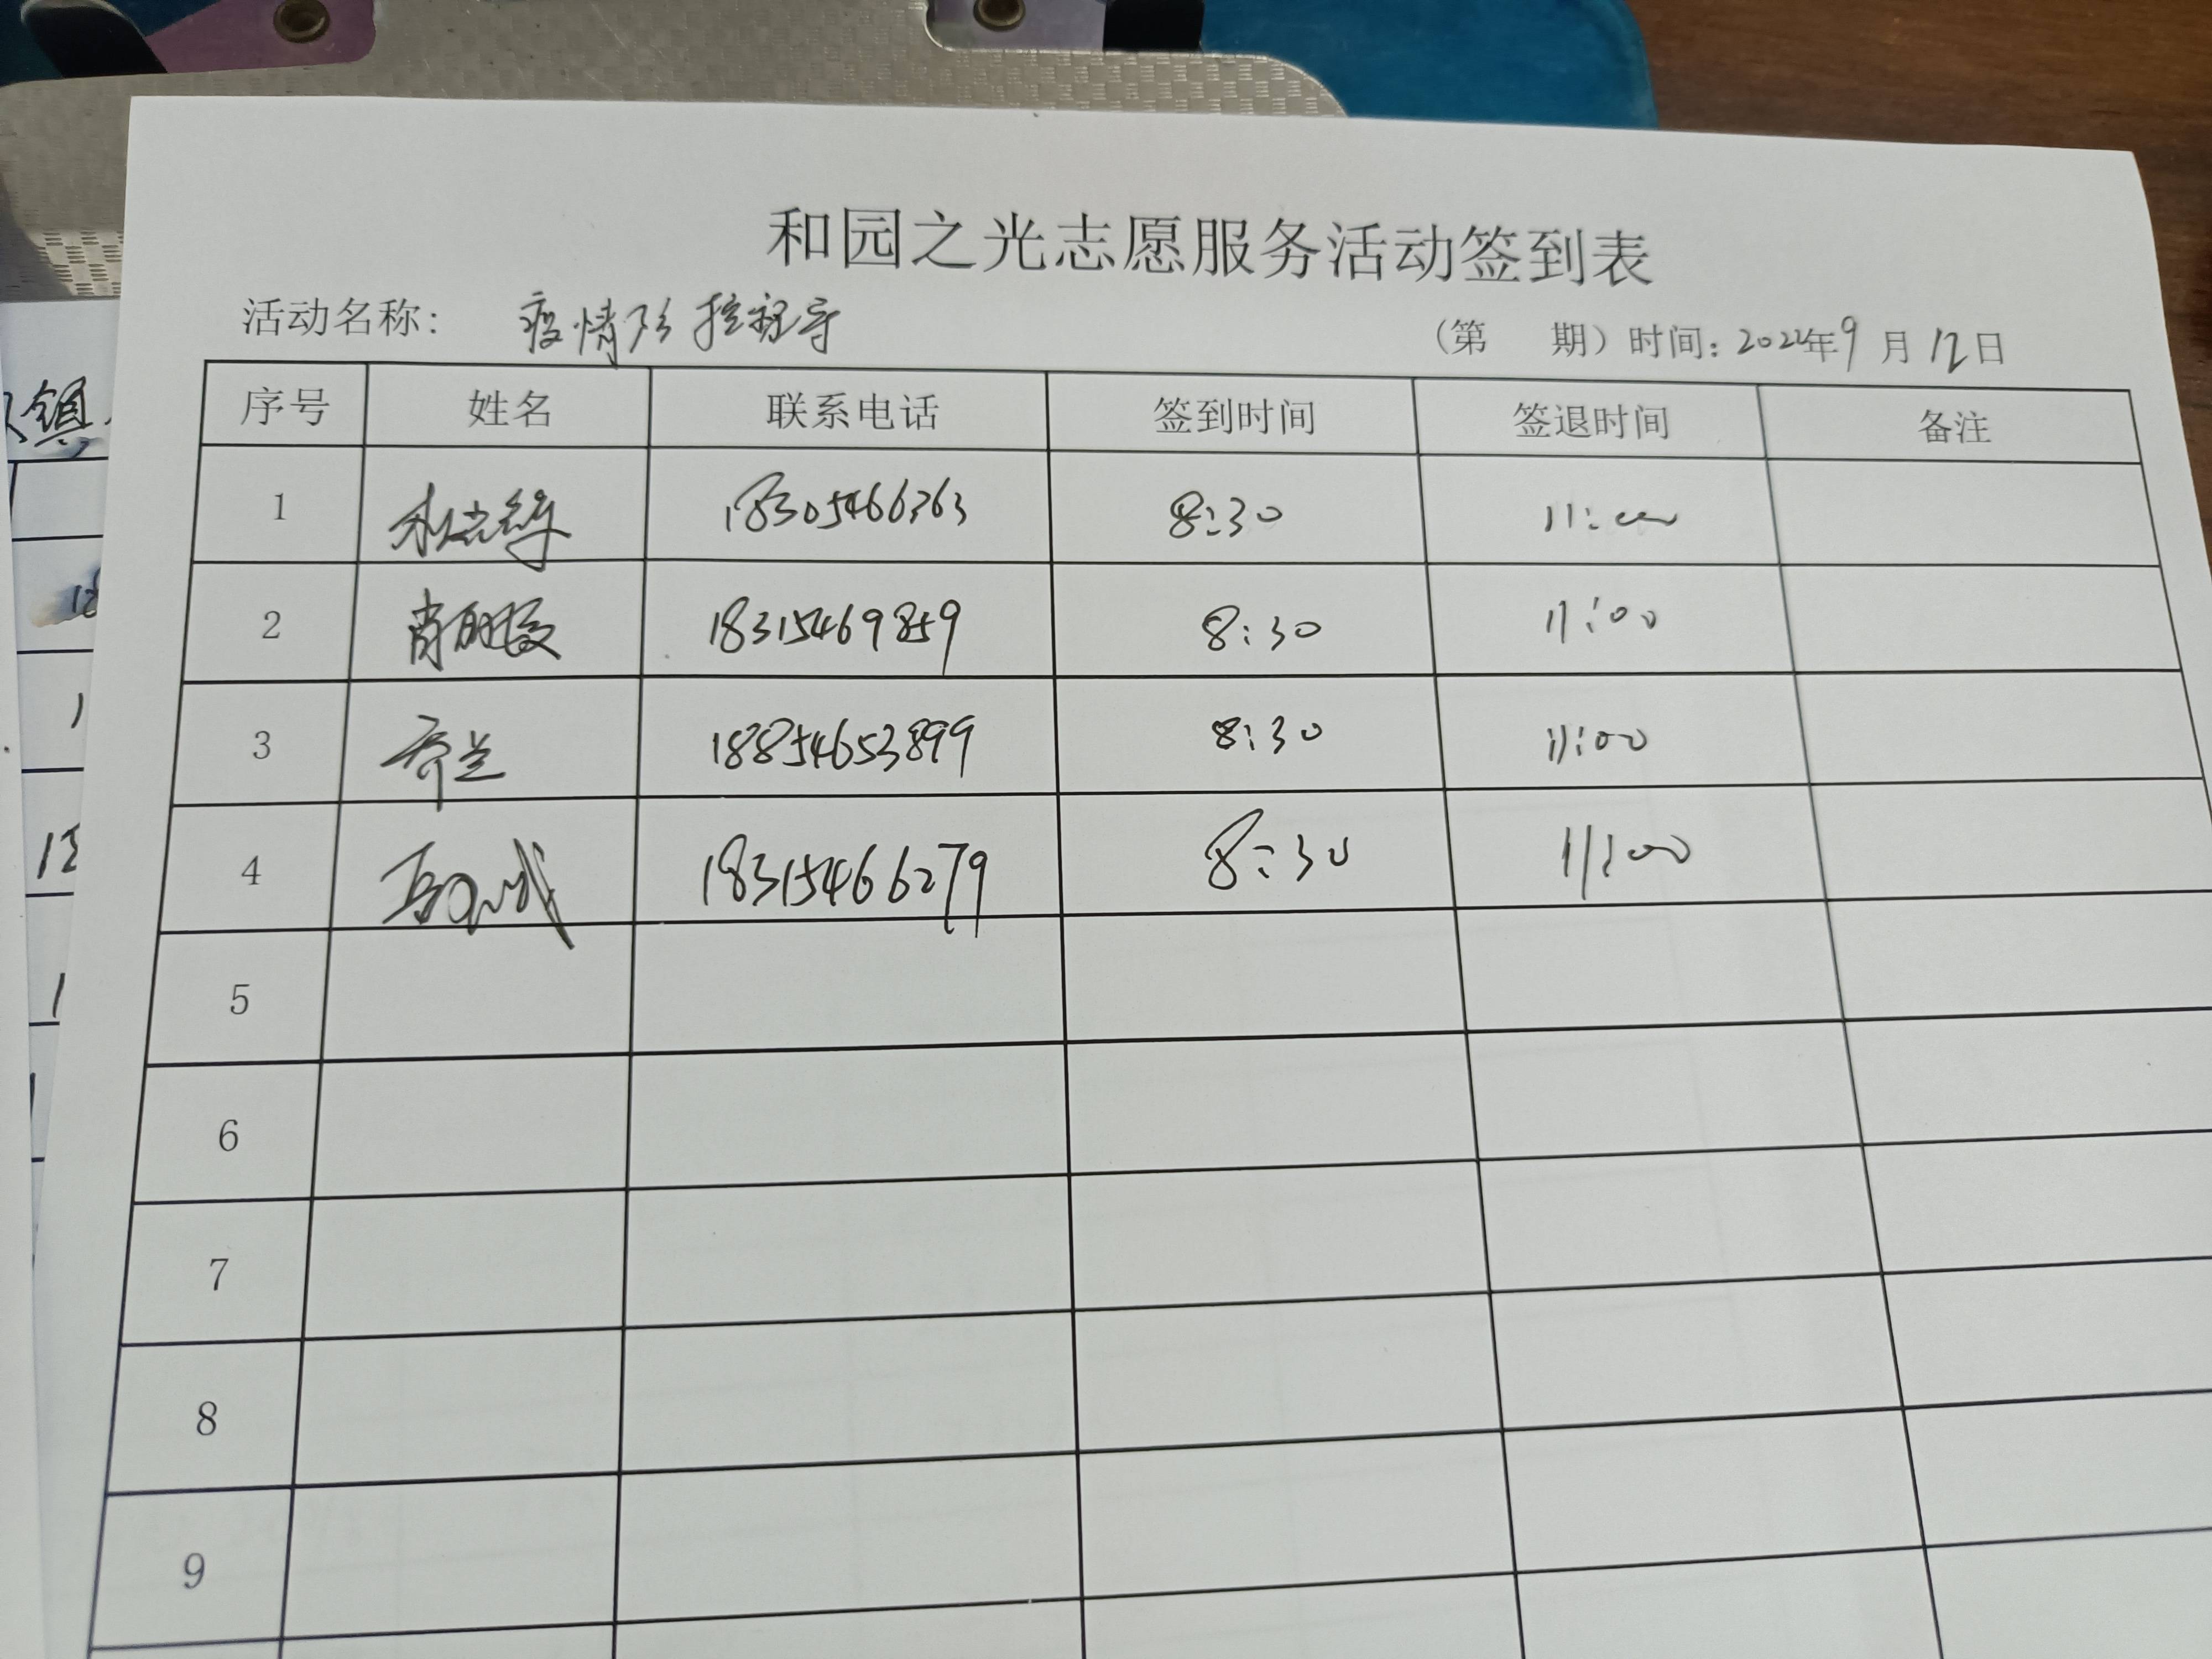 和园之光志愿服务活动签到表
活动名称: 疫情防控
(第 期) 时间: 2022年9月12日
序号 姓名 联系电话 签到时间 签退时间 备注
1 18305466363 8:30 11:00
2 肖 18315469859 8:30 11:00
3 乔兰 18854653899 8:30 11:00
4 18315466279 8:30 11:00
5
6
7
8
9
镇